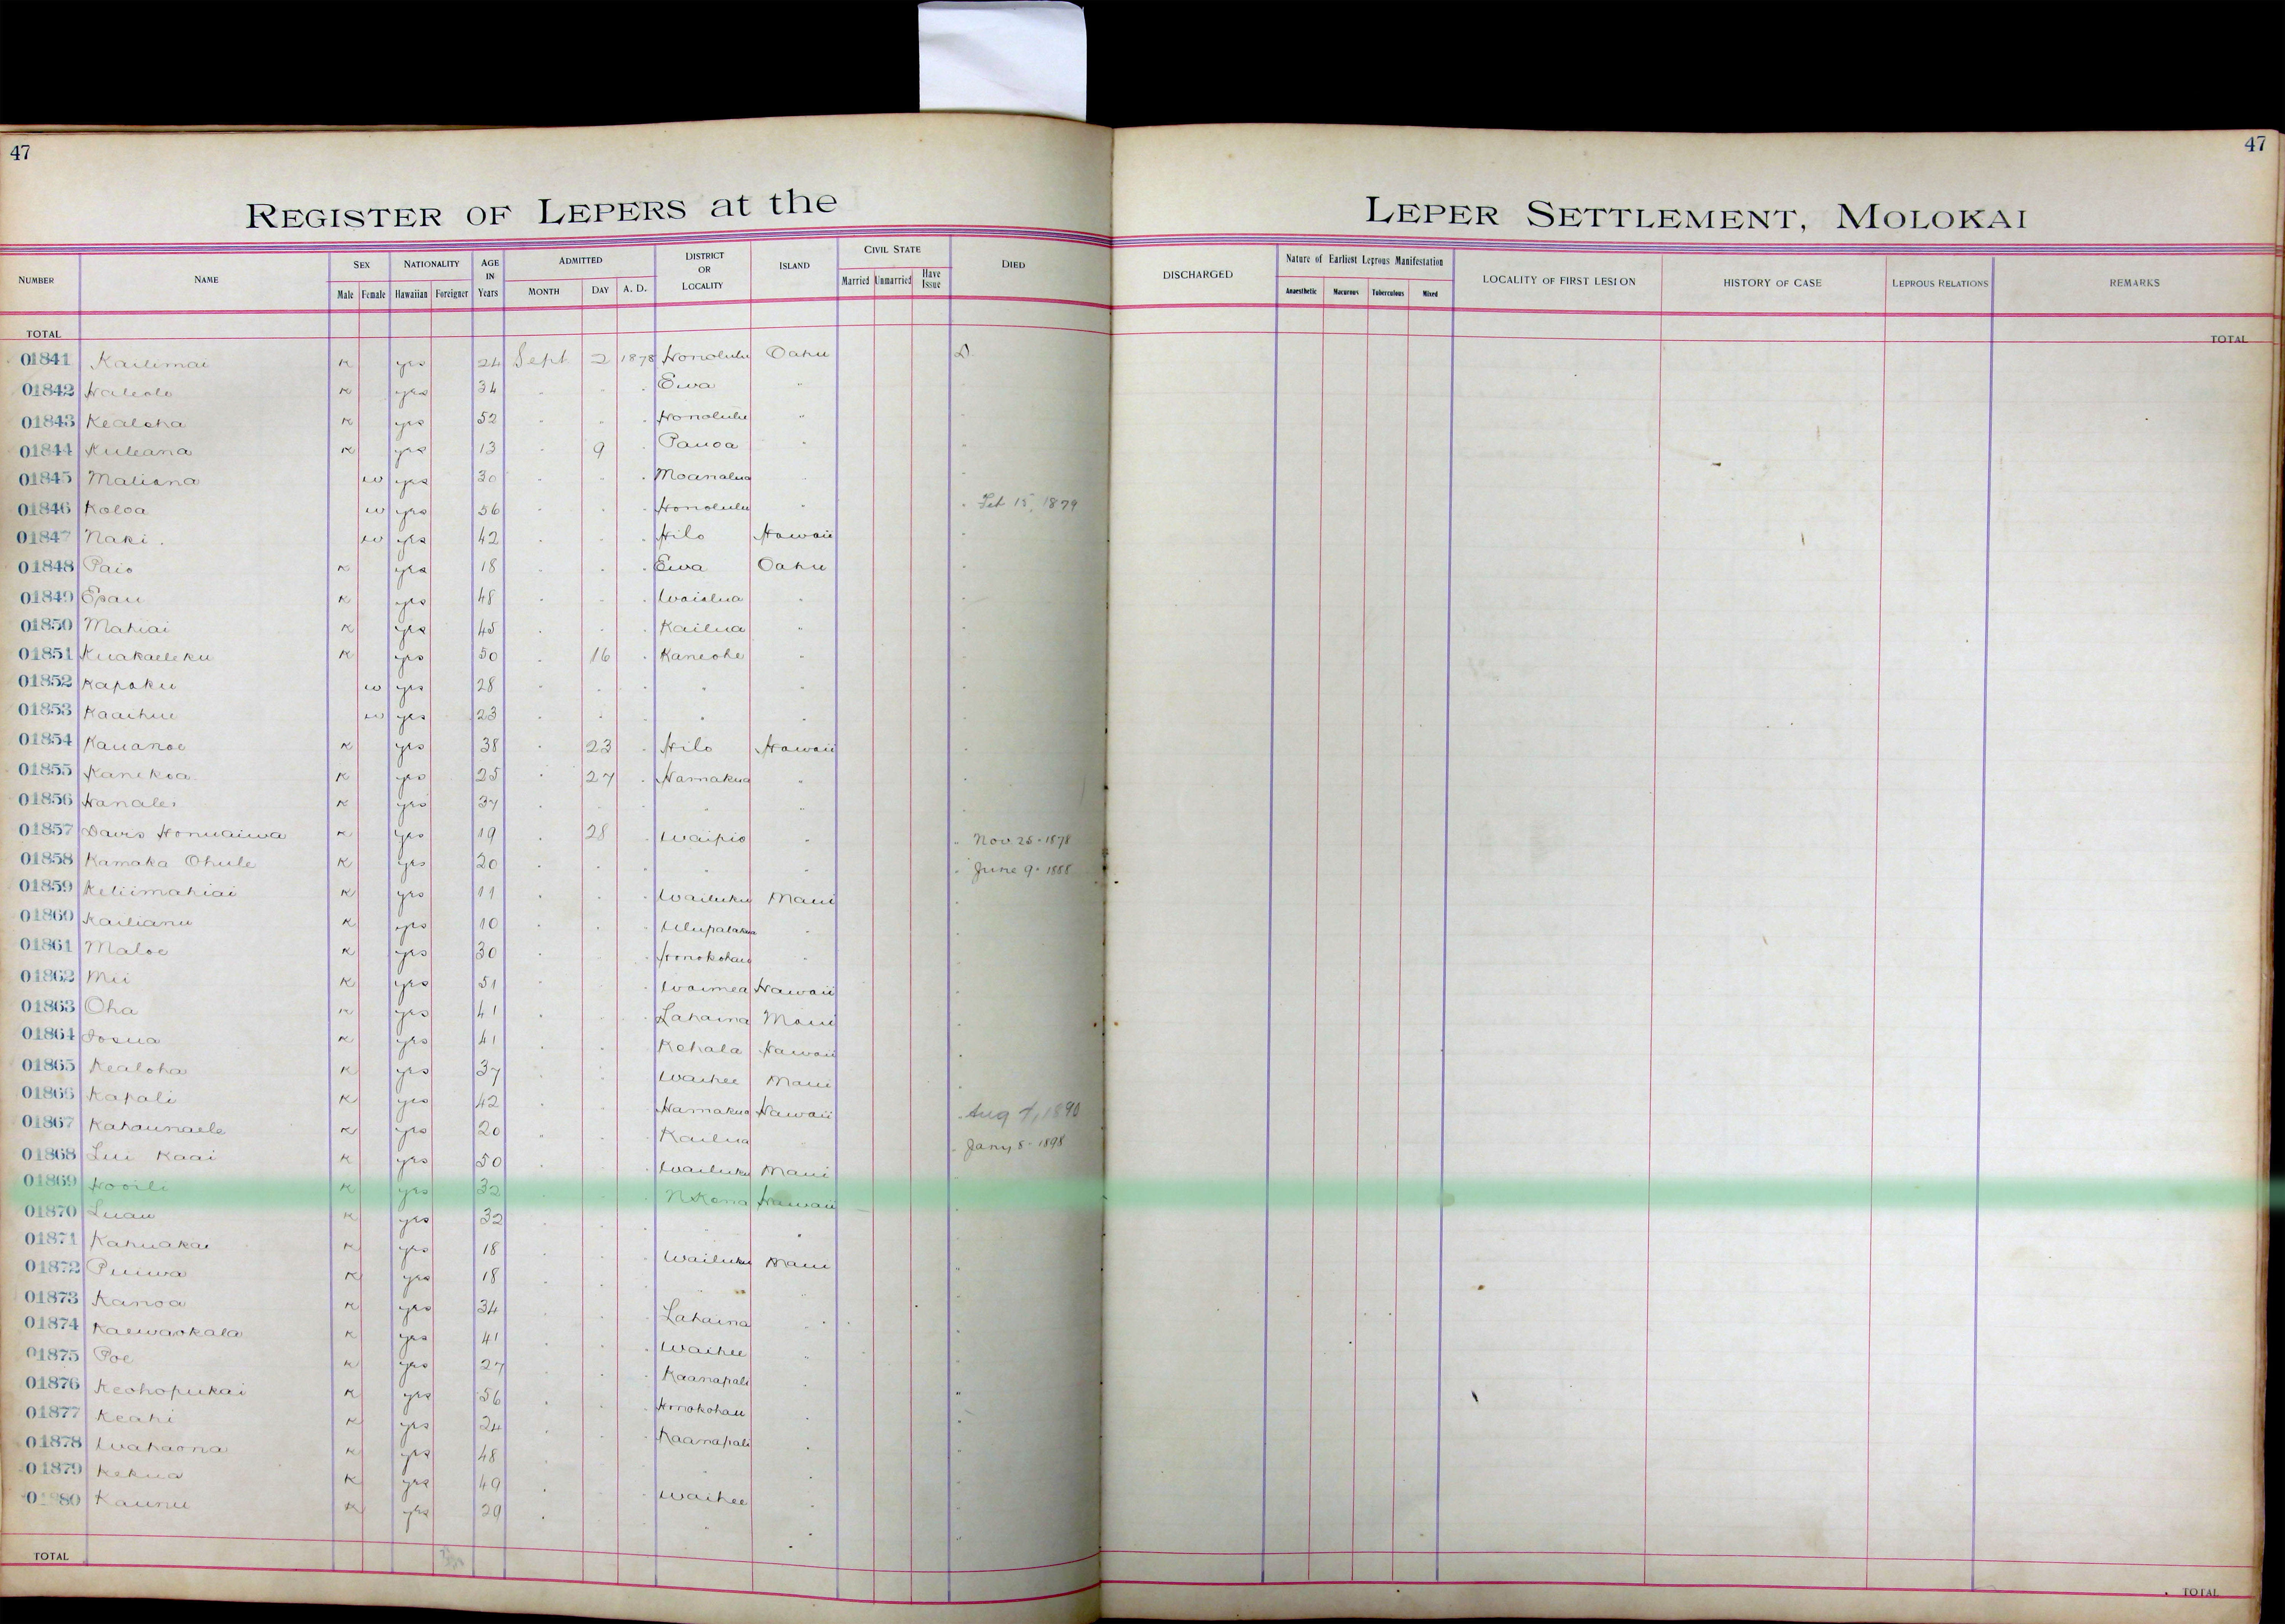 47
47
REGISTER OF LEPERS at the LEPER SETTLEMENT, MOLOKAI
NUMBER NAME SEX NATIONALITY AGE IN Years ADMITTED DISTRICT OR LOCALITY ISLAND CIVIL STATE DIED DISCHARGED Nature of Earliest Leprous Manifestation LOCALITY OF FIRST LESION HISTORY OF CASE LEPROUS RELATIONS REMARKS
Male Female Hawaiian Foreigner MONTH DAY A. D. Married Unmarried Have Issue Anaesthetic Macurous Tuberculous Mixed
TOTAL TOTAL
01841 Kailimai K yes 24 Sept 2 1878 Honolulu Oahu D
01842 Haleolo K yes 34 " " " Ewa "
01843 Kealoha K yes 52 " " " Honolulu "
01844 Kuleana K yes 13 " 9 " Pauoa "
01845 Maliana w yes 30 " " " Moanalua "
01846 Koloa w yes 56 " " " Honolulu " " Feb 15, 1879
01847 Naki w yes 42 " " " Hilo Hawaii "
01848 Paio K yes 18 " " " Ewa Oahu "
01849 Epau K yes 48 " " " Waialua " "
01850 Mahiai K yes 45 " " " Kailua " "
01851 Kuakaeleku K yes 50 " 16 " Kaneohe " "
01852 Kapoku w yes 28 " " " " "
01853 Kaaihue w yes 23 " " " " "
01854 Kauanoe K yes 38 " 23 " Hilo Hawaii "
01855 Kanekoa K yes 25 " 27 " Hamakua " "
01856 Hanalei K yes 37 " " " " " "
01857 Davis Honuaiwa K yes 19 " 28 " Waipio " " Nov 25 - 1878
01858 Kamaka Ohule K yes 20 " " " " " " June 9 - 1888
01859 Keliimahiai K yes 11 " " " Wailuku Maui "
01860 Kailianu K yes 10 " " " Ulupalakua " "
01861 Maloe K yes 30 " " " Honokohau " "
01862 Mii K yes 51 " " " Waimea Hawaii "
01863 Oha K yes 41 " " " Lahaina Maui "
01864 Iosua K yes 41 " " " Kohala Hawaii "
01865 Kealoha K yes 37 " " " Waihee Maui "
01866 Kapali K yes 42 " " " Hamakua Hawaii " Aug 7, 1890
01867 Kahaunaele K yes 20 " " " Kailua " " Jany 8 - 1898
01868 Lui Kaai K yes 50 " " " Wailuku Maui
01869 Hooili K yes 32 " " " N Kona Hawaii
01870 Luau K yes 32 " " " " " "
01871 Kahuakai K yes 18 " " " Wailuku Maui
01872 Puiwa K yes 18 " " " " " "
01873 Kanoa K yes 34 " " " Lahaina " "
01874 Kaewaokala K yes 41 " " " Waihee " "
01875 Poe K yes 27 " " " Kaanapali " "
01876 Keohopukai K yes 56 " " " Honokohau " "
01877 Keahi K yes 24 " " " Kaanapali " "
01878 Wahaona K yes 48 " " " " " "
01879 Kekua K yes 49 " " " Waihee " "
01880 Kaunu K yes 29 " " " " " "
TOTAL TOTAL